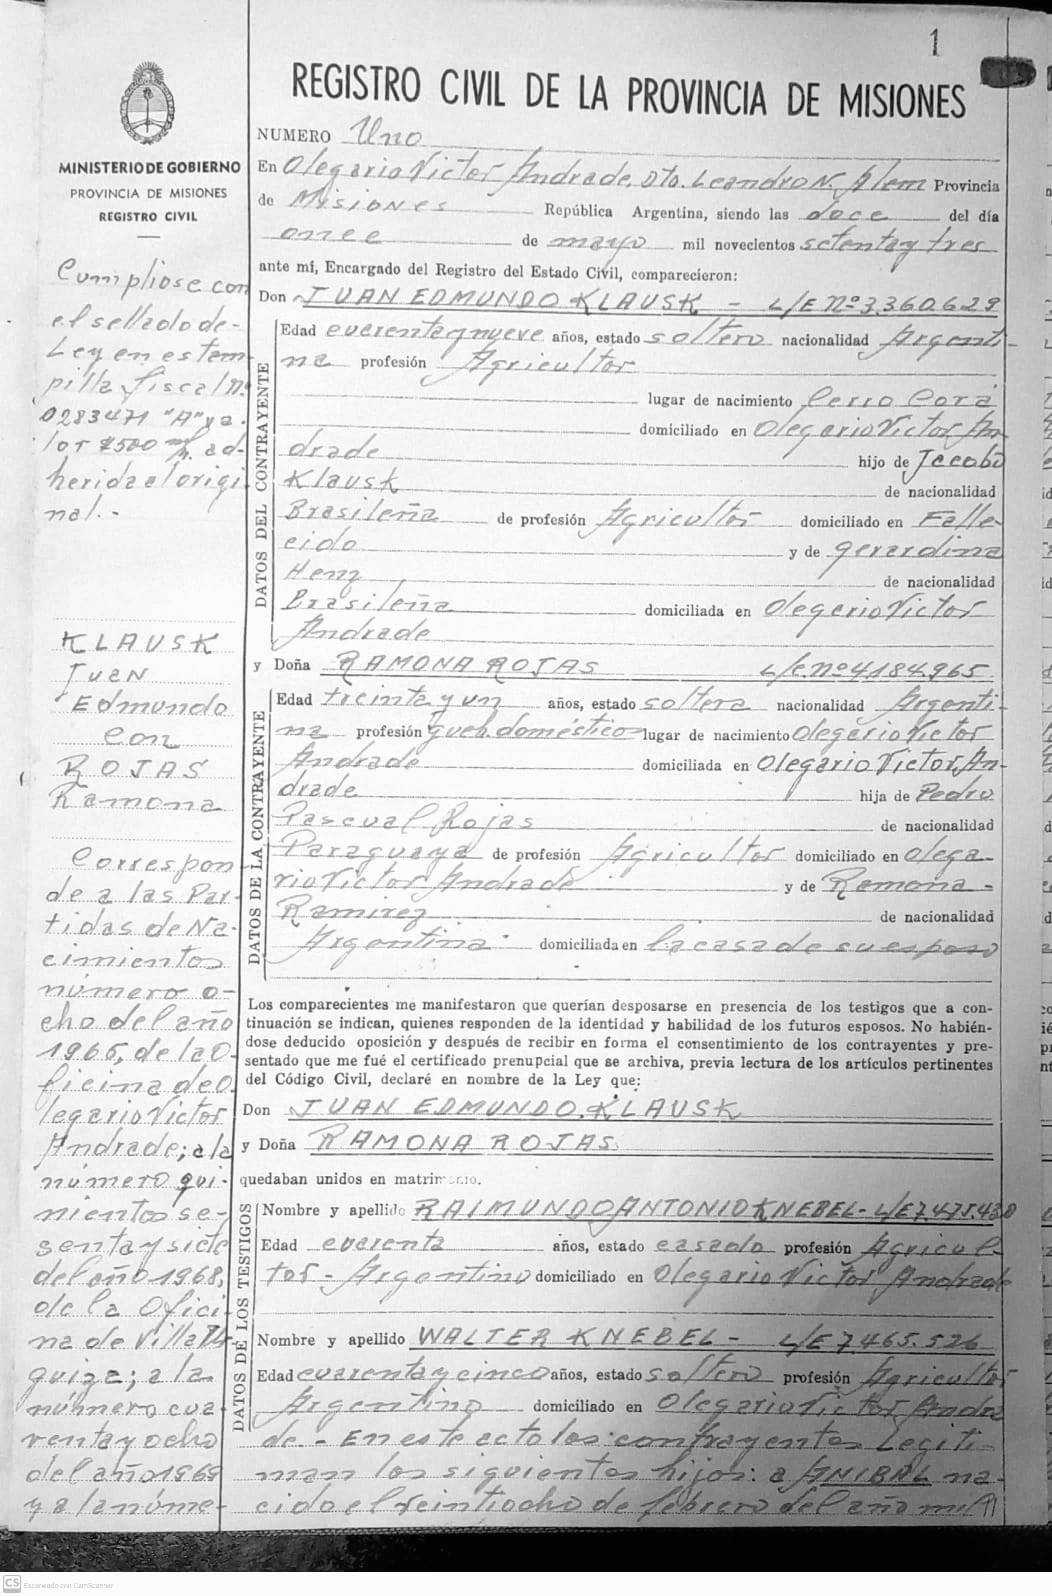 1
REGISTRO CIVIL DE LA PROVINCIA DE MISIONES
MINISTERIO DE GOBIERNO
PROVINCIA DE MISIONES
REGISTRO CIVIL
NUMERO Uno
En Olegario Victor Andrade, Dto. Leandro N. Alem Provincia
de Misiones República Argentina, siendo las doce del día
once de mayo mil novecientos setenta y tres
ante mí, Encargado del Registro del Estado Civil, comparecieron:
Don JUAN EDMUNDO KLAUSK - L/E Nº 3.360.629
DATOS DEL CONTRAYENTE
Edad cuarenta y nueve años, estado soltero nacionalidad Argenti-
na profesión Agricultor
lugar de nacimiento Cerro Corá
domiciliado en Olegario Victor An-
drade hijo de Jacobo
Klausk de nacionalidad
Brasileña de profesión Agricultor domiciliado en Falle-
cido y de Gerardina
Henz de nacionalidad
Brasileña domiciliada en Olegario Victor
Andrade
y Doña RAMONA ROJAS L/C. Nº 4.184.965
DATOS DE LA CONTRAYENTE
Edad treinta y un años, estado soltera nacionalidad Argenti-
na profesión queh. doméstico lugar de nacimiento Olegario Victor
Andrade domiciliada en Olegario Victor An-
drade hija de Pedro
Pascual Rojas de nacionalidad
Paraguaya de profesión Agricultor domiciliado en Olega-
rio Victor Andrade y de Ramona -
Ramirez de nacionalidad
Argentina domiciliada en la casa de su esposo
Los comparecientes me manifestaron que querían desposarse en presencia de los testigos que a con-
tinuación se indican, quienes responden de la identidad y habilidad de los futuros esposos. No habién-
dose deducido oposición y después de recibir en forma el consentimiento de los contrayentes y pre-
sentado que me fué el certificado prenupcial que se archiva, previa lectura de los artículos pertinentes
del Código Civil, declaré en nombre de la Ley que:
Don JUAN EDMUNDO KLAUSK
y Doña RAMONA ROJAS
quedaban unidos en matrimonio.
DATOS DE LOS TESTIGOS
Nombre y apellido RAIMUNDO ANTONIO KNEBEL - L/E 7.475.430
Edad cuarenta años, estado casado profesión Agricul-
tor - Argentino domiciliado en Olegario Victor Andrade
Nombre y apellido WALTER KNEBEL - L/E 7.465.526
Edad cuarenta y cinco años, estado soltero profesión Agricultor
Argentino domiciliado en Olegario Victor Andra
de. - En este acto los contrayentes Legiti-
man los siguientes hijos: a ANIBAL na-
cido el veintiocho de febrero del año mil
Cumpliose con
el sellado de-
Ley en estam
pilla fiscal Nº
0283471 "A" va-
lor $500 m/n. ad-
herida al origi
nal. -
KLAUSK
Juan
Edmundo
con
ROJAS
Ramona
Correspon
de a las Par-
tidas de Na-
cimientos
número o-
cho del año
1965, de la O-
ficina de O-
legario Victor
Andrade; a la
número qui-
nientos se-
senta y siete
del año 1968,
de la Ofici-
na de Villa Ur
quiza; a la
número cua-
renta y ocho
del año 1969
y a la núme-
CS Escaneado con CamScanner